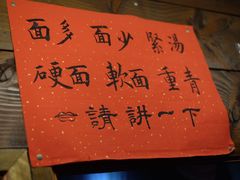 面多 面少 緊湯
硬面 軟面 重青
請講一下